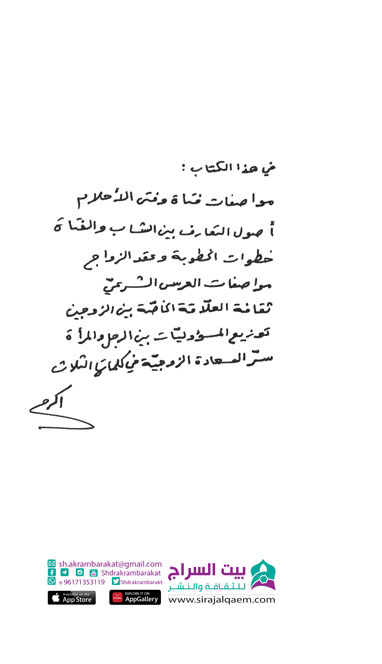 في هذا الكتاب :
مواصفات فتاة وفتى الأحلام
أصول التعارف بين الشاب والفتاة
خطوات الخطوبة وعقد الزواج
مواصفات العرس الشرعيّ
ثقافة العلاقة الخاصّة بين الزوجين
توزيع المسؤوليّات بين الرجل والمرأة
سرّ السعادة الزوجيّة في كلماتها الثلاث
اكرم
sh.akrambarakat@gmail.com
Shdrakrambarakat
+96171353119 Shdrakrambarakt
Available on the App Store
EXPLORE IT ON AppGallery
بيت السراج
للثقافة والنشر
www.sirajalqaem.com